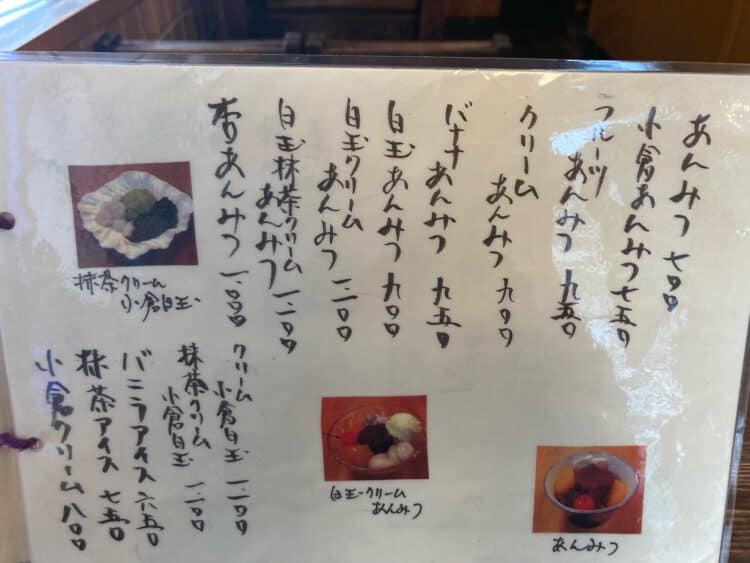 あんみつ 七〇〇
小倉あんみつ 七五〇
フルーツ
あんみつ 九五〇
クリーム
あんみつ 九〇〇
バナナ
あんみつ 九五〇
白玉あんみつ 九〇〇
白玉クリーム
あんみつ
白玉抹茶クリーム
あんみつ
杏あんみつ 一、〇〇〇
抹茶クリーム
小倉白玉
クリーム
小倉白玉
抹茶クリーム
小倉白玉
バニラアイス 六五〇
抹茶アイス 七五〇
小倉クリーム 八〇〇
白玉クリーム
あんみつ
あんみつ